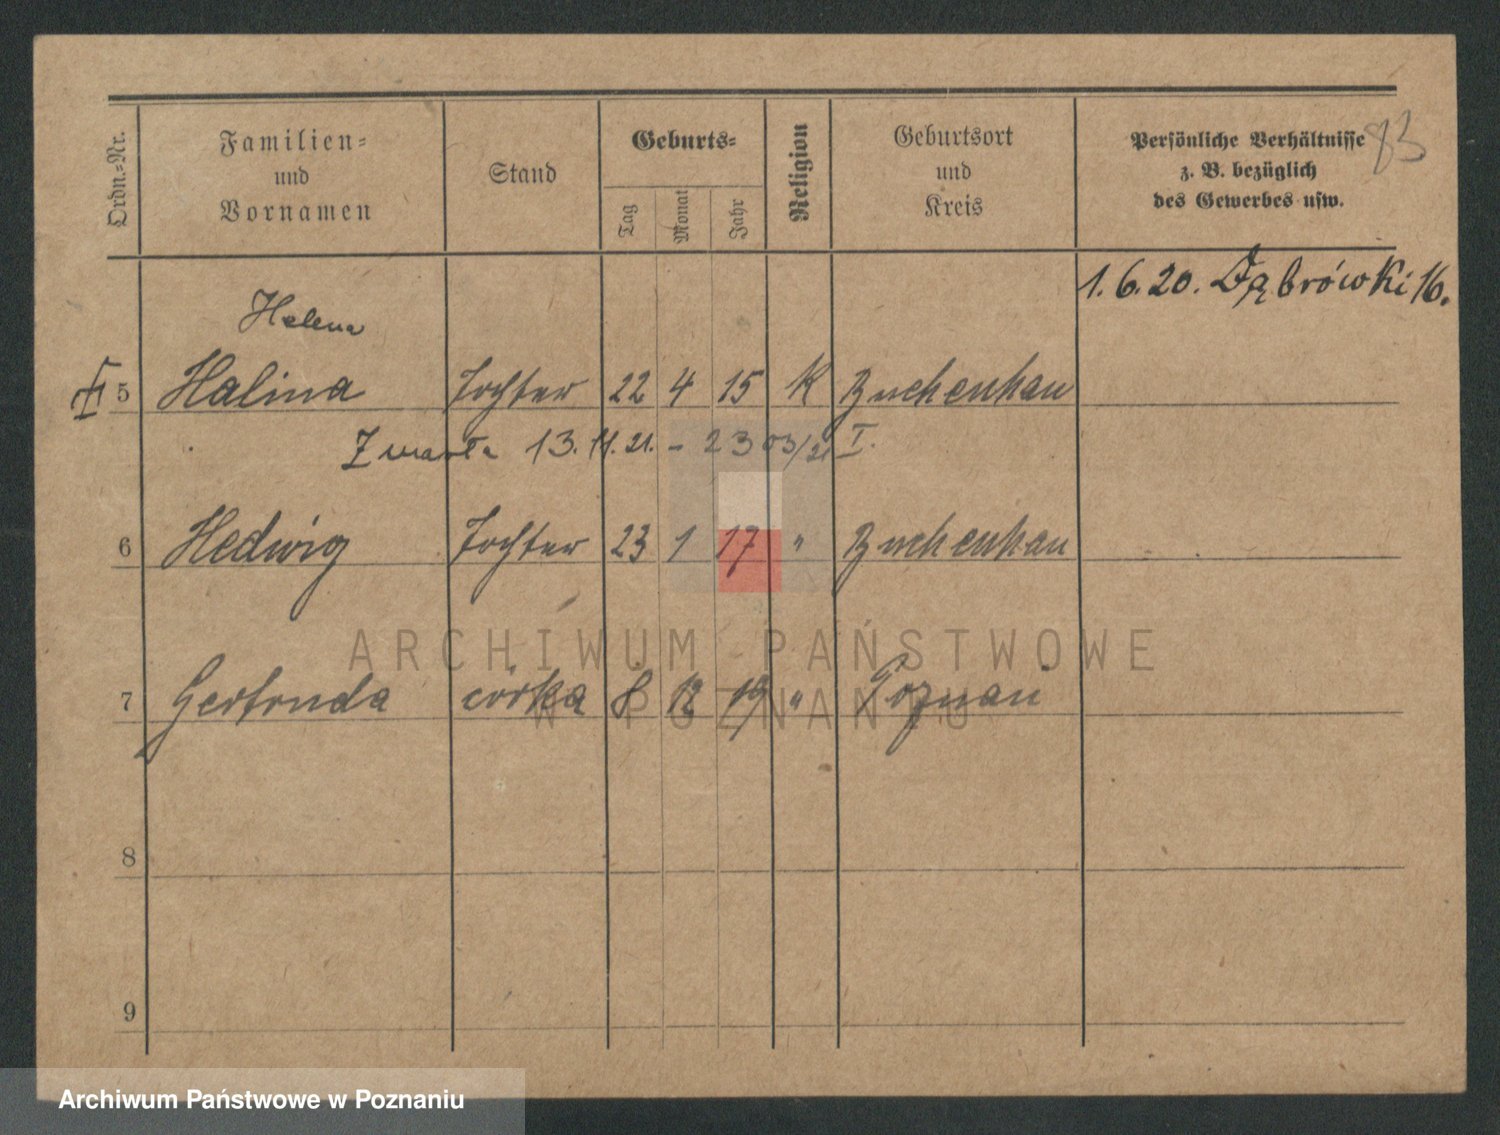 83
Ordn.-Nr.
Familien-
und
Vornamen
Stand
Geburts-
Tag
Monat
Jahr
Religion
Geburtsort
und
Kreis
Persönliche Verhältnisse
z. B. bezüglich
des Gewerbes usw.
1. 6. 20. Dąbrówki 16.
Helena
5 Halina Tochter 22 4 15 K Buchenhau
Zmarła 13. 11. 21. - 23 03/21 I.
6 Hedwig Tochter 23 1 17 " Buchenhau
ARCHIWUM PAŃSTWOWE
W POZNANIU
7 Gertruda córka 8 12 19 " Poznań
8
9
Archiwum Państwowe w Poznaniu